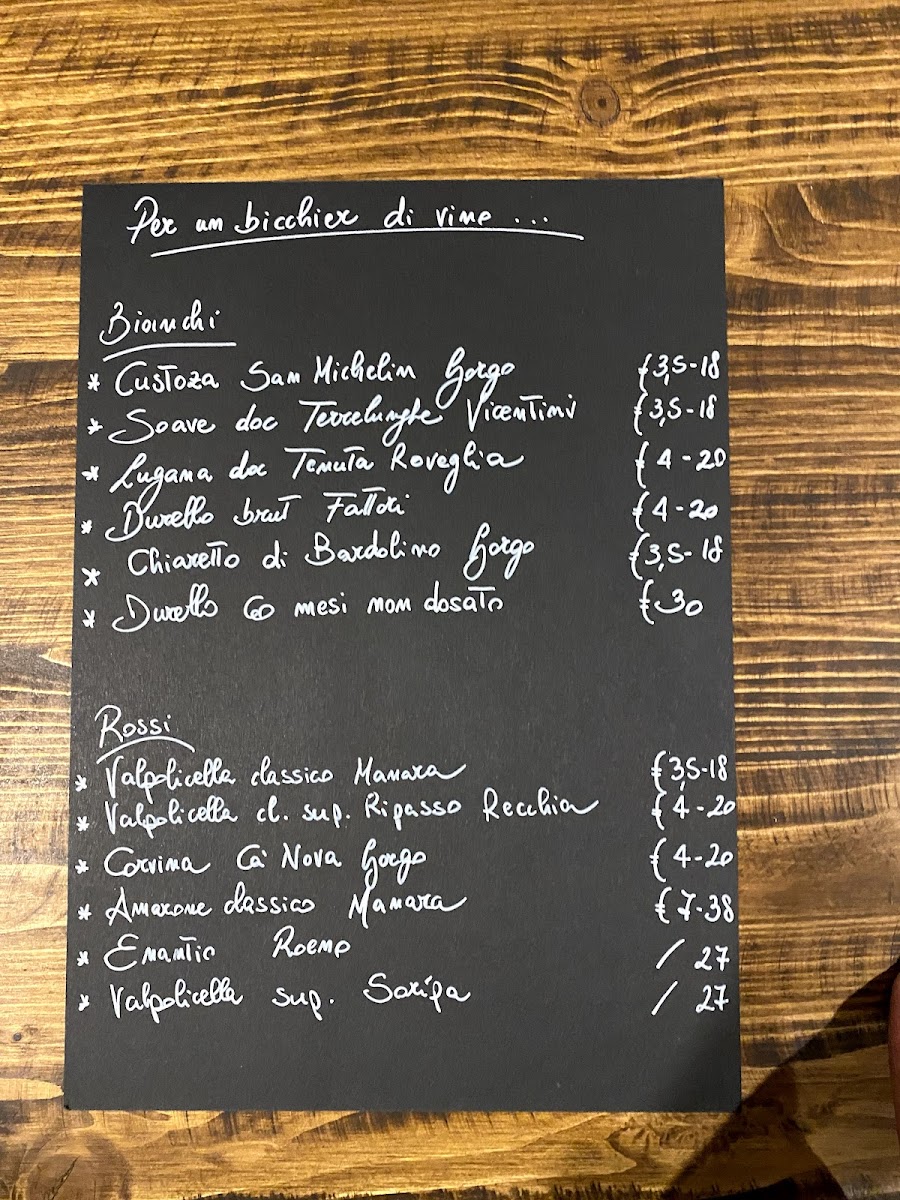 Per un bicchier di vino ...
Bianchi
* Custoza San Michelin Gorgo €3,5-18
* Soave doc Terrelunghe Vicentini €3,5-18
* Lugana doc Tenuta Roveglia €4-20
* Durello brut Fattori €4-20
* Chiaretto di Bardolino Gorgo €3,5-18
* Durello 60 mesi non dosato €30
Rossi
* Valpolicella classico Manara €3,5-18
* Valpolicella cl. sup. Ripasso Recchia €4-20
* Corvina Cà Nova Gorgo €4-20
* Amarone classico Manara €7-38
* Enantio Roeno / 27
* Valpolicella sup. / 27